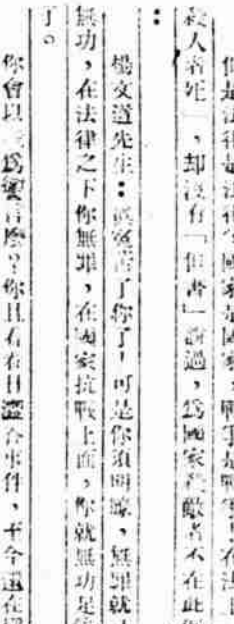 但是法律是法律，國家是國家，戰爭是戰爭！在法上
殺人者死」，却沒有「但書」說過，爲國家殺敵者不在此
：
楊文道先生：眞委屈了你了！可是你須明瞭，無罪就
無功，在法律之下你無罪，在國家抗戰上面，你就無功是
了。
你會以爲變言麼？你且看看日 合事件，至今還在